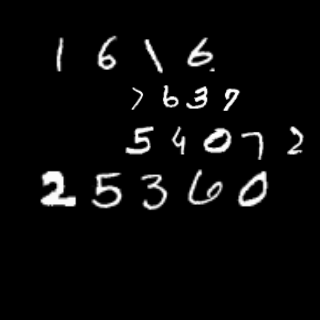 1616
7637
54072
25360